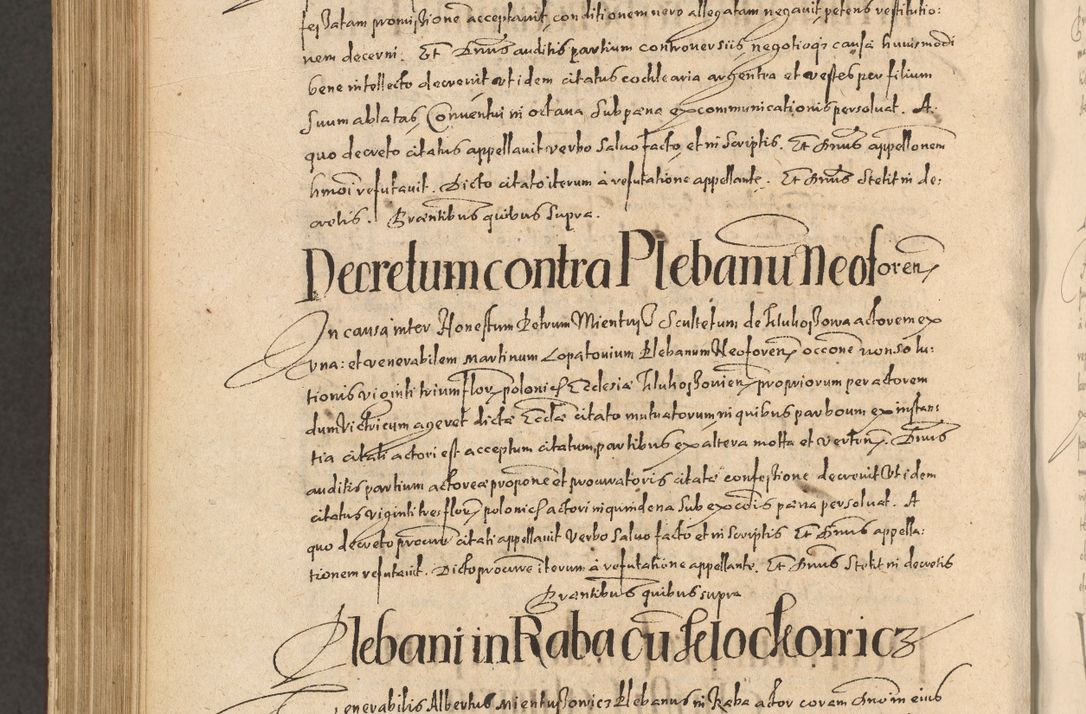 fessatam promissionem acceptavit, conditionem vero allegatam negavit petens restitutio:
nem decerni. Et Dnus auditis partium controversiis, negotioqz causa huiusmodi
bene intellecto decrevit ut idem citatus cochlearia argentea et vestes per filium
suum ablatas, Conventui in octava sub pæna excommunicationis persolvat. A
quo decreto citatus appellavit verbo salvo facto et in scriptis. Et Dnus appellonem
hmoi refutavit. Dicto citato iterum à refutatione appellante. Et Dnus stetit in de:
cretis. Præntibus quibus supra.
Decretum contra Plebanū Neoforen
In causa inter Honestum Petrum Scultetum de actorem ex
vna: et venerabilem Martinum Lopatovium Plebanum Neoforen occone non solu:
tionis viginti trium flor, polonicj Ecclesiæ propriorum per actorem
dum victricum ageret dictæ Ecclæ citato mutuatorum in quibus par boum ex instan:
tia citati actori est acceptum citatum, partibus ex altera mota et verten. Dnus
auditis partium actoreæ propone et procuratoris citati confessione decrevit ut idem
citatus viginti tres flor, polonicj actori in quindena sub excois pæna persolvat. A
quo decreto procure citati appellavit verbo salvo facto et in scriptis Et Dnus appella:
tionem refutavit. Dicto procure iterum à refutatione appellante. Et Dnus stetit in decretis
Præntibus quibus supra
Plebani in Raba cū
Venerabilis Albertus Plebanus in Raba actor coram Dno in eius